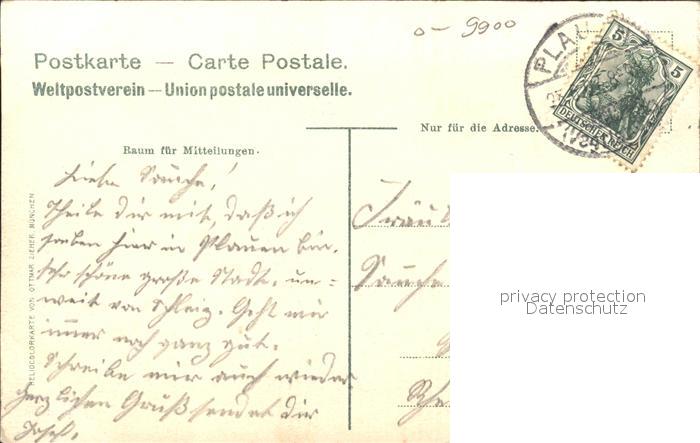 o- 9900
Postkarte — Carte Postale.
Weltpostverein — Union postale universelle.
PLAU
5 5
DEUTSCHES REICH
Nur für die Adresse.
Raum für Mitteilungen.
HELIOCOLORKARTE VON OTTMAR ZIEHER, MÜNCHEN
Theile dir mit, daß ich
soeben hier in Plauen bin.
Sehr schöne große Stadt. un=
weit von Schleiz. Geht mir
immer noch ganz gut.
Schreibe mir auch wieder
Herzlichen Gruß sendet dir
Josef.
privacy protection
Datenschutz